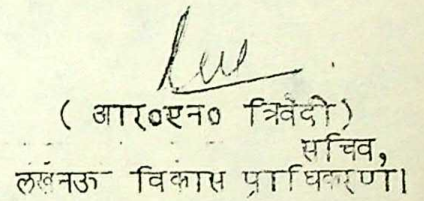 ( आर०एन० त्रिवेदी )
सचिव,
लखनऊ विकास प्राधिकरण।